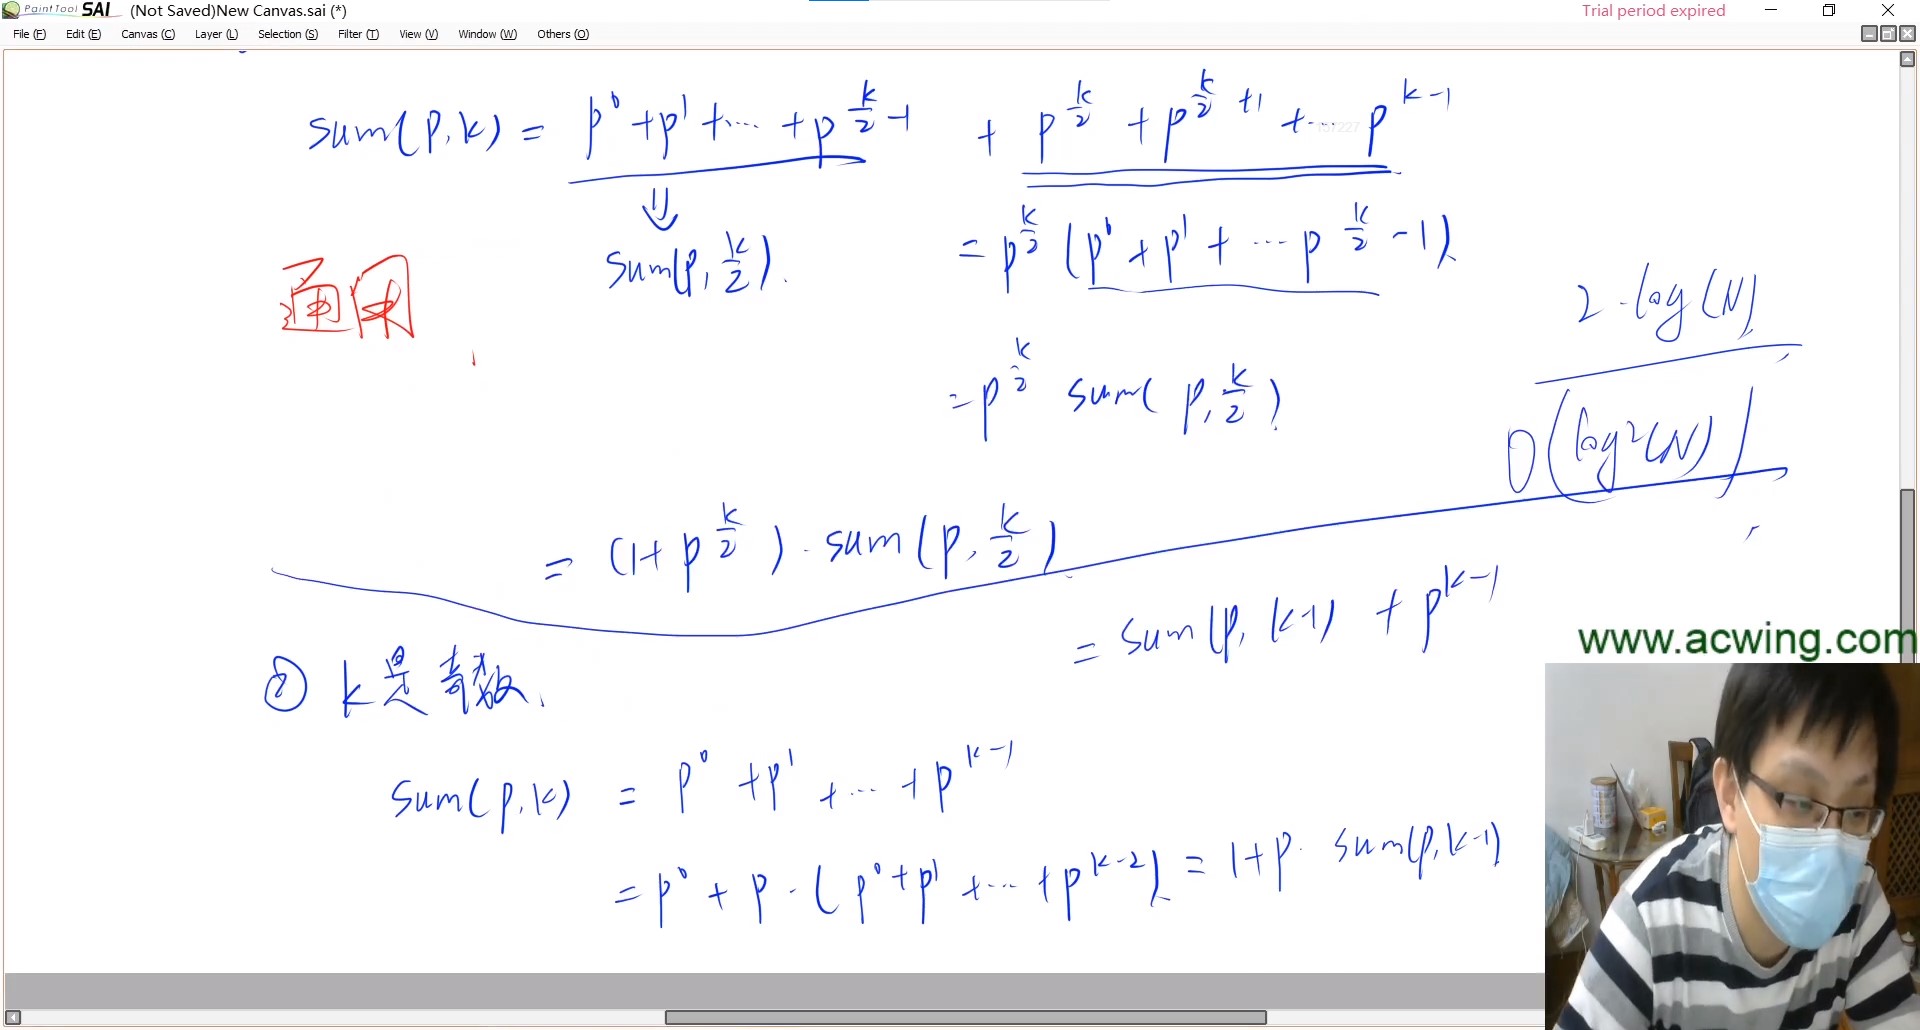 PaintTool SAI (Not Saved)New Canvas.sai (*) Trial period expired
File (F) Edit (E) Canvas (C) Layer (L) Selection (S) Filter (T) View (V) Window (W) Others (O)
sum(p,k) = p^0 + p^1 + ... + p^{k/2 - 1} + p^{k/2} + p^{k/2 + 1} + ... p^{k-1}
⇓
sum(p, k/2). = p^{k/2} (p^0 + p^1 + ... p^{k/2 - 1})
通用
2 · log(N)
= p^{k/2} sum(p, k/2)
O(log²(N))
= (1 + p^{k/2}) · sum(p, k/2)
= sum(p, k-1) + p^{k-1}
www.acwing.com
② k是奇数.
sum(p,k) = p^0 + p^1 + ... + p^{k-1}
= p^0 + p · (p^0 + p^1 + ... + p^{k-2}) = 1 + p · sum(p, k-1)